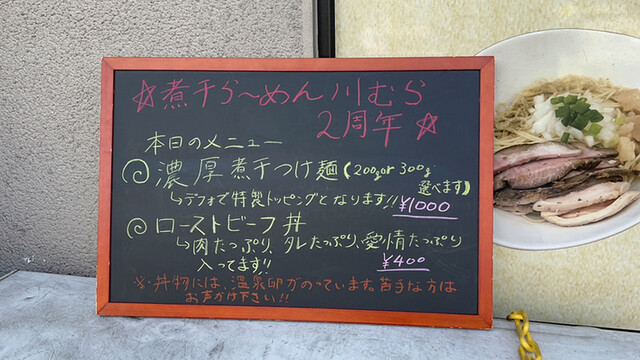 ☆煮干らーめん川むら
2周年☆
本日のメニュー
濃厚煮干つけ麺(200gor300g
選べます)
↳デフォで特製トッピングとなります!!¥1000
ローストビーフ丼
↳肉たっぷり、タレたっぷり、愛情たっぷり
入ってます!! ¥400
※・丼物には、温泉卵がのっています。苦手な方は
お声がけ下さい!!